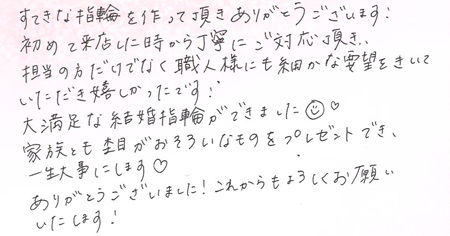 すてきな指輪を作って頂きありがとうございます!
初めて来店した時から丁寧にご対応頂き、
担当の方だけでなく職人様にも細かな要望をきいて
いただき嬉しかったです!
大満足な結婚指輪ができました☺♡
家族とも杢目がおそろいなものをプレゼントでき、
一生大事にします♡
ありがとうございました!これからもよろしくお願い
いたします!